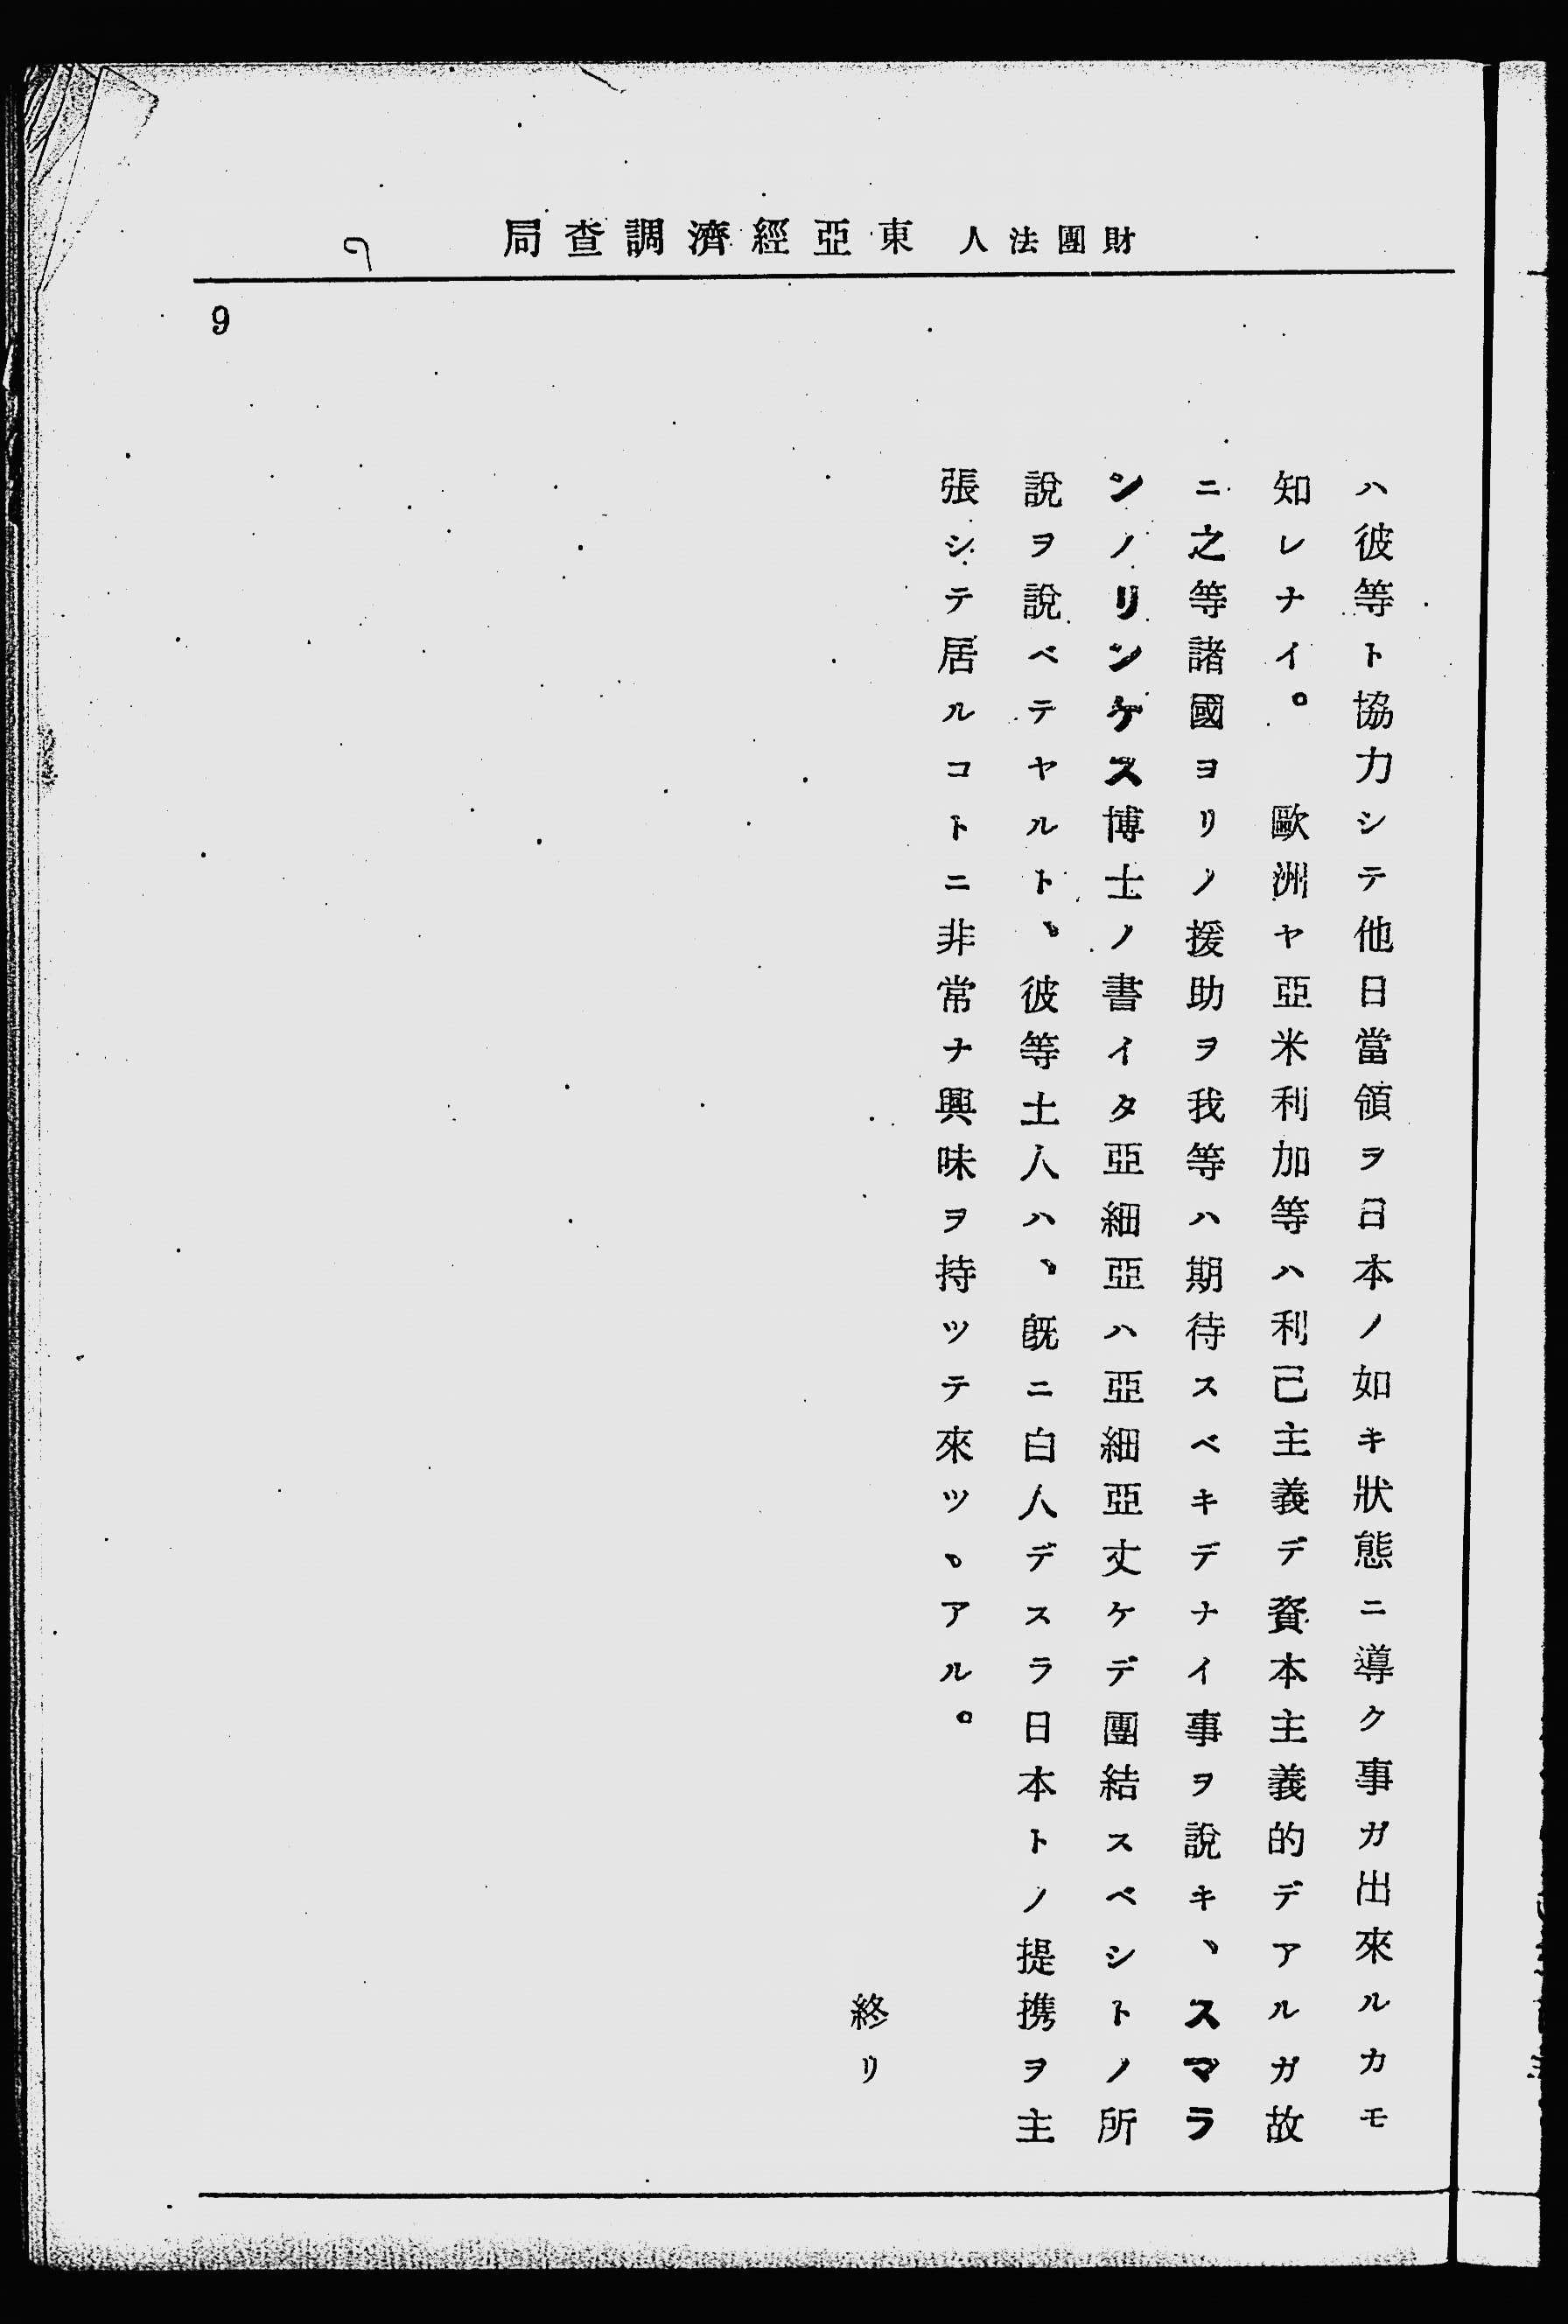 財團法人 東亞經濟調查局
9
ハ彼等ト協力シテ他日當領ヲ日本ノ如キ狀態ニ導ク事ガ出來ルカモ
知レナイ。 歐洲ヤ亞米利加等ハ利己主義デ資本主義的デアルガ故
ニ之等諸國ヨリノ援助ヲ我等ハ期待スベキデナイ事ヲ說キ、スマラ
ンノリンケス博士ノ書イタ亞細亞ハ亞細亞丈ケデ團結スベシトノ所
說ヲ說ベテヤルト、彼等土人ハ、既ニ白人デスラ日本トノ提携ヲ主
張シテ居ルコトニ非常ナ興味ヲ持ツテ來ツヽアル。
終リ